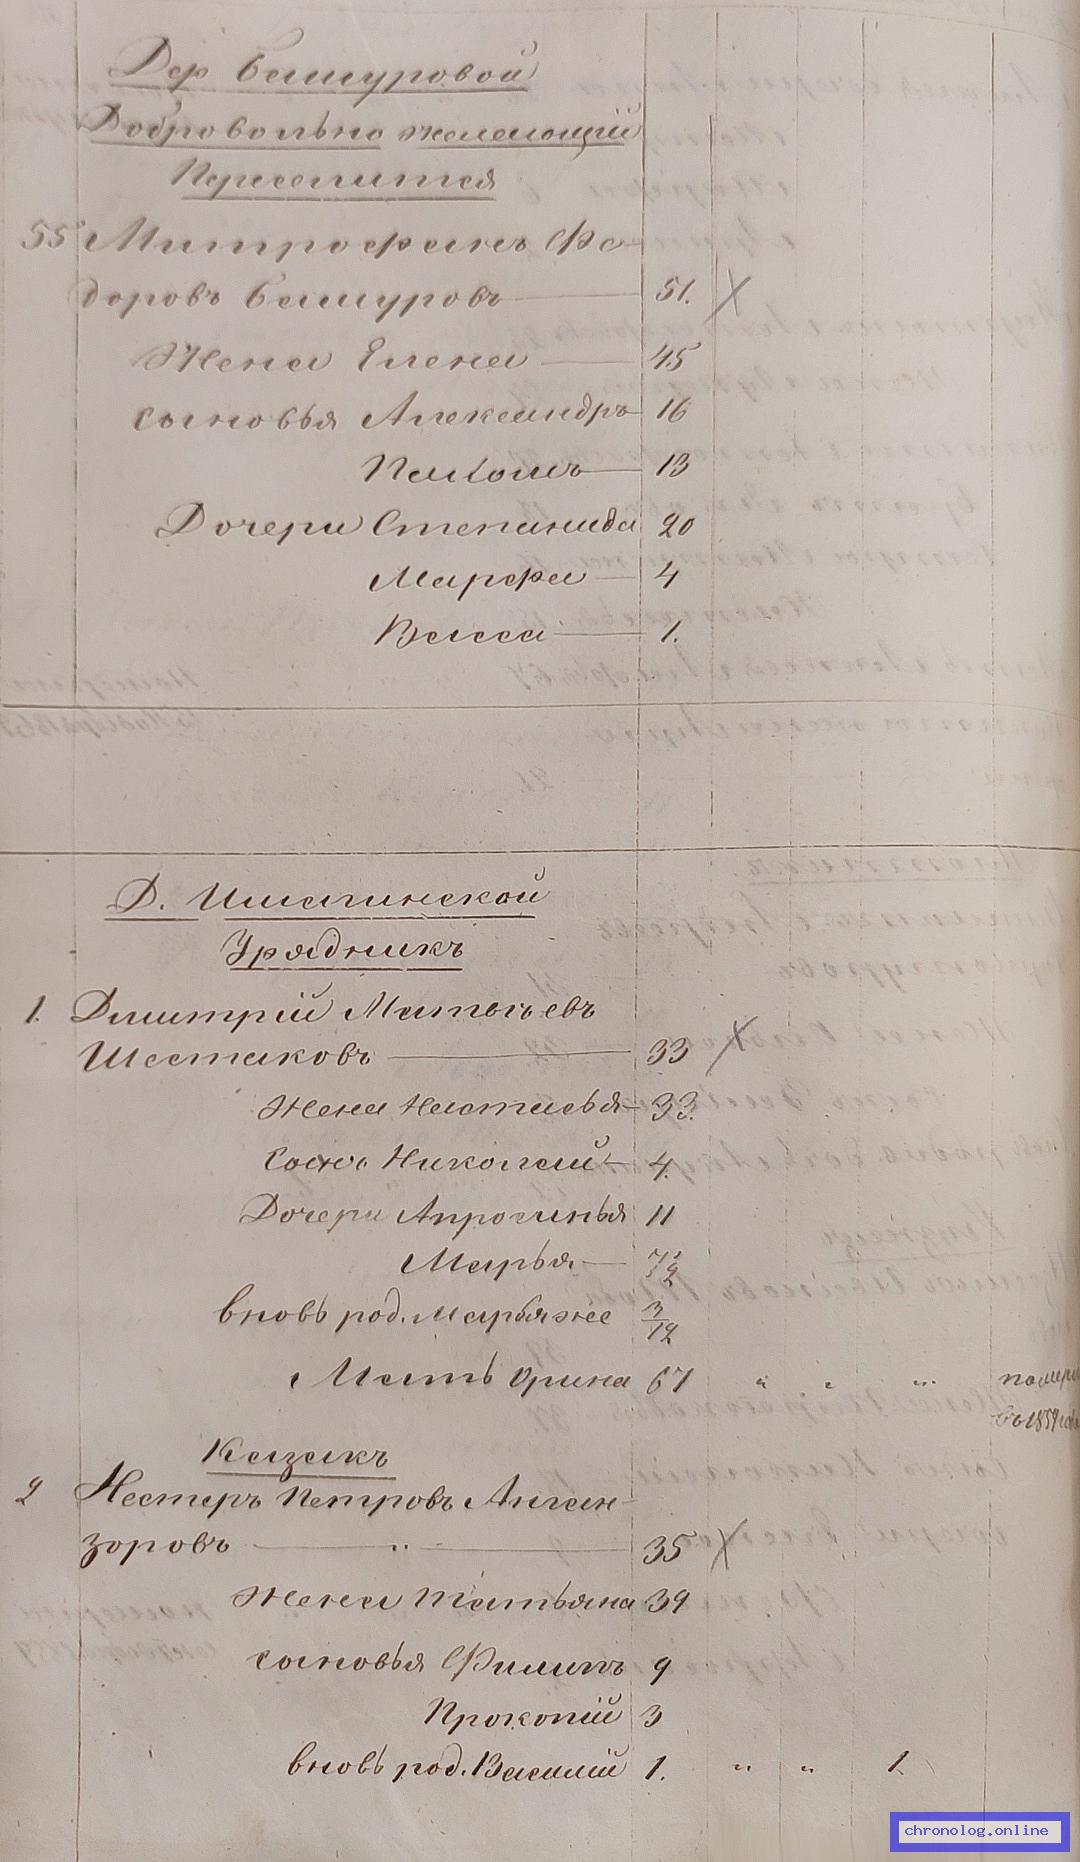 Дер Башуровой
Добровольно желающій
Переселится
55 Митрофанъ Фе-
доровъ Башуровъ 51.
Жена Елена 45
сыновья Александръ 16
Пахомъ 13
Дочери Степанида 20
Марфа 4
Васса 1.
Д. Ишагинской
Урядникъ
1. Дмитрій Матвѣевъ
Шестаковъ 33
Жена Настасья 33.
Сынъ Николай 4.
Дочери Апросинья 11
Марья
вновь род. Марья же 3/12
Мать Орина 67 " " " помер
въ 1859
Казакъ
2 Нестеръ Петровъ Анган-
зоровъ " 35
Жена Татьяна 39
сыновья Филипъ 9
Прокопій 3
вновь род. Василій 1. " " 1
chronolog.online